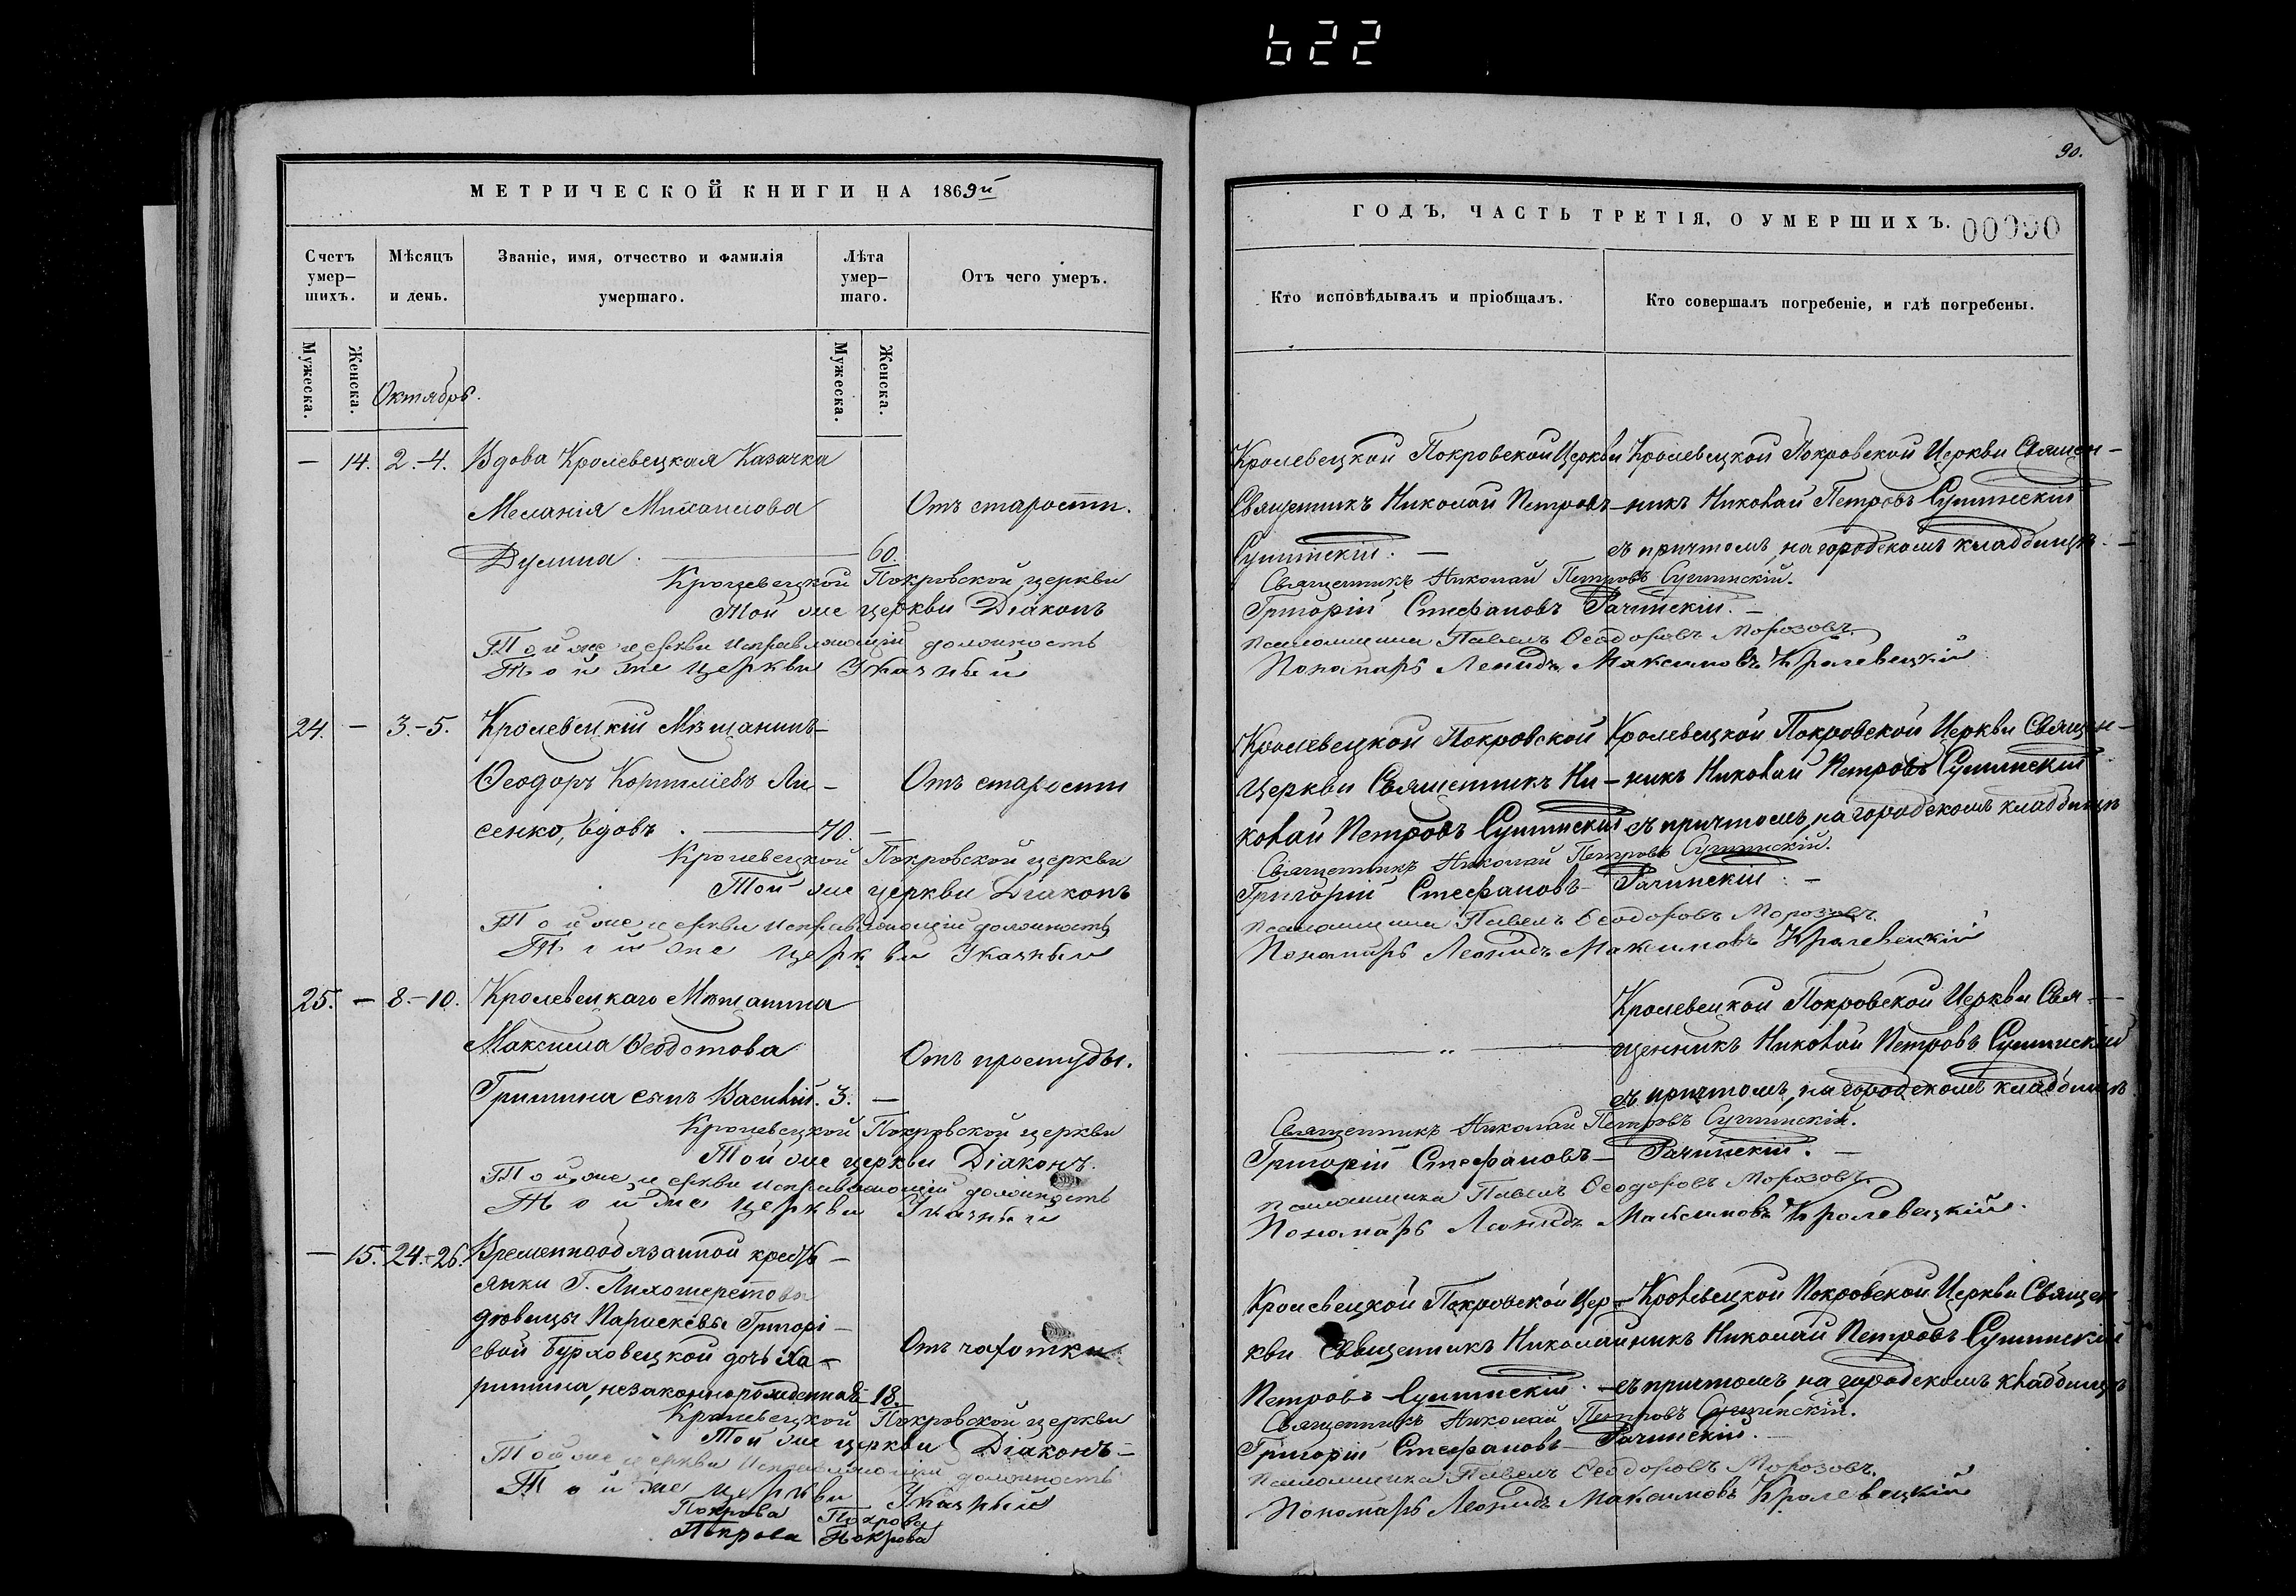 622
МЕТРИЧЕСКОЙ КНИГИ НА 1869й
Счетъ умер-шихъ.
Мѣсяцъ и день.
Званіе, имя, отчество и фамилія умершаго.
Лѣта умер-шаго.
Отъ чего умеръ.
Мужеска.
Женска.
Октябрь.
Мужеска.
Женска.
— 14. 2.-4. Вдова Кролевецкая Казачка
Меланія Михаилова Отъ старости.
60.
Кролевецкой Покровской церкви
Той же церкви Діаконъ
Той же церкви исправляющій должность
Той же церкви Указный
24. — 3.-5. Кролевецкій Мѣщанинъ
Ѳеодоръ Корниліевъ Ли- Отъ старости
сенко, вдовъ. 70. —
Кролевецкой Покровской церкви
Той же церкви Діаконъ
Той же церкви исправляющій должность
Той же церкви Указный
25. — 8.-10. Кролевецкаго Мѣщанина
Максима Ѳеодотова Отъ простуды.
Гришина сынъ Василій. 3. —
Кролевецкой Покровской церкви
Той же церкви Діаконъ.
Той же церкви исправляющій должность
Той же церкви Указный
— 15. 24.-26. Временнообязанной кресть-
янки Г.
дѣвицы Параскевы Григорі-
евой Бурховецкой дочь Ха- Отъ чахотки
ритина, незаконнорожденная 18.
Кролевецкой Покровской церкви
Той же церкви Діаконъ-
Той же церкви Исправляющій должность
Той же церкви Указный
Покрова Покрова
Покрова Покрова
90.
ГОДЪ, ЧАСТЬ ТРЕТІЯ, О УМЕРШИХЪ. 00090
Кто исповѣдывалъ и пріобщалъ.
Кто совершалъ погребеніе, и гдѣ погребены.
Кролевецкой Покровской Церкви Кролевецкой Покровской Церкви Священ-
Священникъ Николай Петровъ никъ Николай Петровъ Сушинскій
Сушинскій. — съ причтомъ, на городскомъ кладбищѣ. —
Священникъ Николай Петровъ Сушинскій.
Григорій Стефановъ Рачинскій. —
псаломщика Павелъ Ѳеодоровъ Морозовъ.
Пономарь Леонидъ Максимовъ Кролевецкій
Кролевецкой Покровской Кролевецкой Покровской Церкви Священ-
Церкви Священникъ Ни- никъ Николай Петровъ Сушинскій
колай Петровъ Сушинскій съ причтомъ, на городскомъ кладбищѣ
Священникъ Николай Петровъ Сушинскій.
Григорій Стефановъ Рачинскій. —
псаломщика Павелъ Ѳеодоровъ Морозовъ.
Пономарь Леонидъ Максимовъ Кролевецкій
Кролевецкой Покровской Церкви Свя-
— „ — щенникъ Николай Петровъ Сушинскій
съ причтомъ, на городскомъ кладбищѣ
Священникъ Николай Петровъ Сушинскій.
Григорій Стефановъ Рачинскій. —
псаломщика Павелъ Ѳеодоровъ Морозовъ.
Пономарь Леонидъ Максимовъ Кролевецкій.
Кролевецкой Покровской Цер- Кролевецкой Покровской Церкви Священ
кви Священникъ Николай никъ Николай Петровъ Сушинскій
Петровъ Сушинскій. — съ причтомъ, на городскомъ кладбищѣ
Священникъ Николай Петровъ Сушинскій.
Григорій Стефановъ Рачинскій. —
псаломщика Павелъ Ѳеодоровъ Морозовъ.
Пономарь Леонидъ Максимовъ Кролевецкій